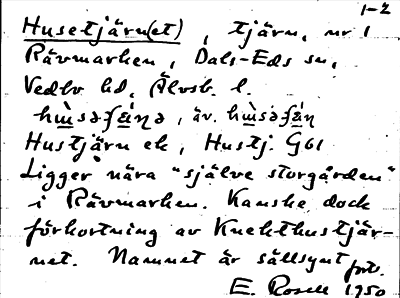 1-2
Husetjärn(et), tjärn, nr 1
Rävmarken, Dals-Eds sn,
Vedbo hd, Älvsb. l.
hùsəʃǽṇə, äv. hùsəʃǽṇ
Hustjärn ek, Hustj. G61
Ligger nära "själve storgården"
i Rävmarken. Kanske dock
förkortning av Knekthustjär-
net. Namnet är sällsynt
forts.
E. Rosell 1950